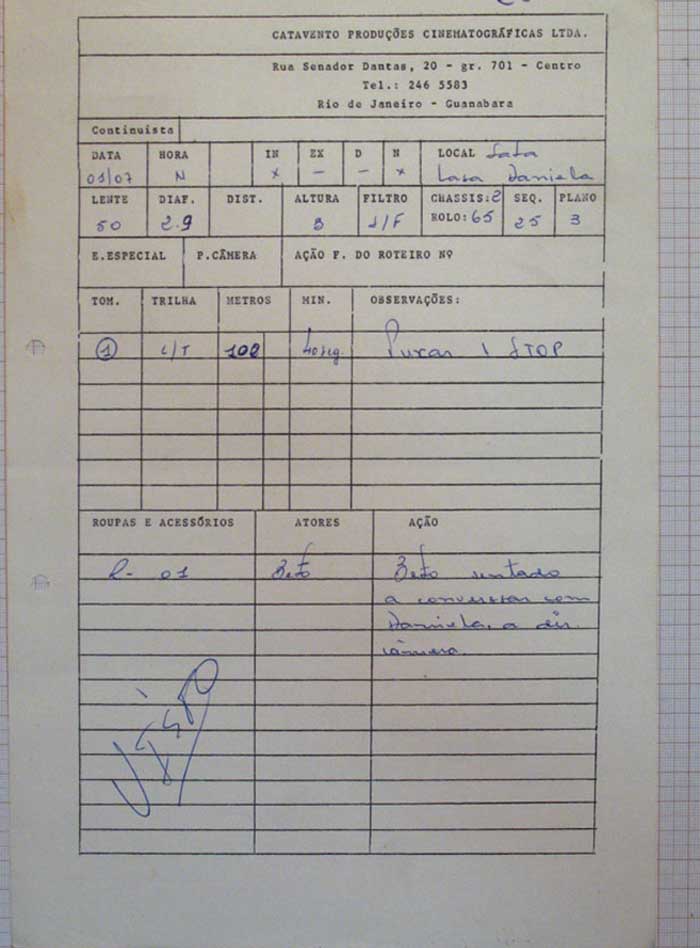 CATAVENTO PRODUÇÕES CINEMATOGRÁFICAS LTDA.
Rua Senador Dantas, 20 - gr. 701 - Centro
Tel.: 246 5583
Rio de Janeiro - Guanabara
Continuista
DATA HORA IN EX D N LOCAL Sala
03/07 N x - - x Casa Daniela
LENTE DIAF. DIST. ALTURA FILTRO CHASSIS: 2 SEQ. PLANO
50 2.9 B S/F ROLO: 65 25 3
E.ESPECIAL P.CÂMERA AÇÃO F. DO ROTEIRO Nº
TOM. TRILHA METROS MIN. OBSERVAÇÕES:
1 C/T 102 40 seg. Puxar 1 STOP
ROUPAS E ACESSÓRIOS ATORES AÇÃO
R- 01 Beto Beto sentado
a conversar com
Daniela, a dir.
câmera.
VISTO